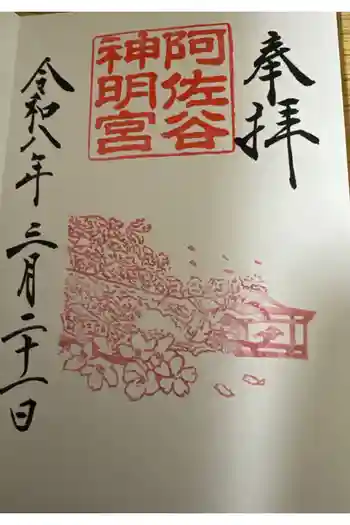 奉拝
阿佐谷
神明宮
令和八年 三月二十一日